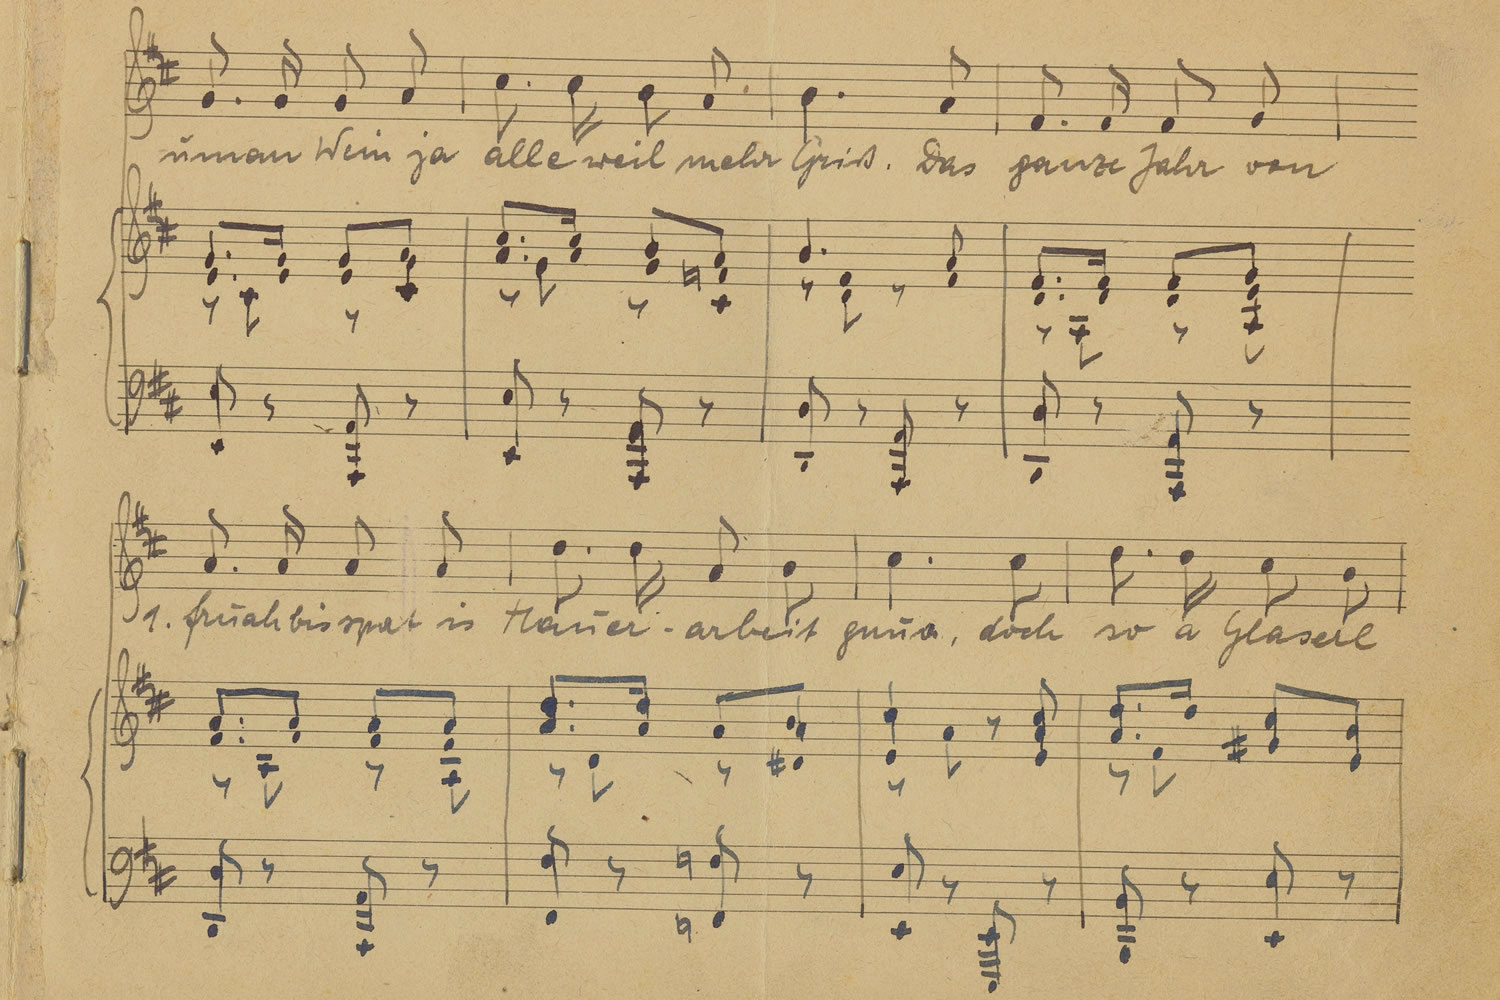 uman Wein ja alle weil mehr Griß. Das ganze Jahr von
1. fruah bis spat is Hauer-arbeit gnua, doch so a Glaserl